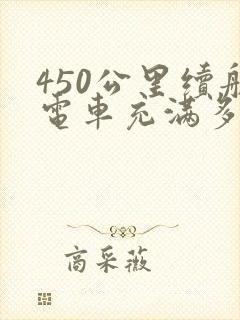 450公里續航
電車充满多
商采薇